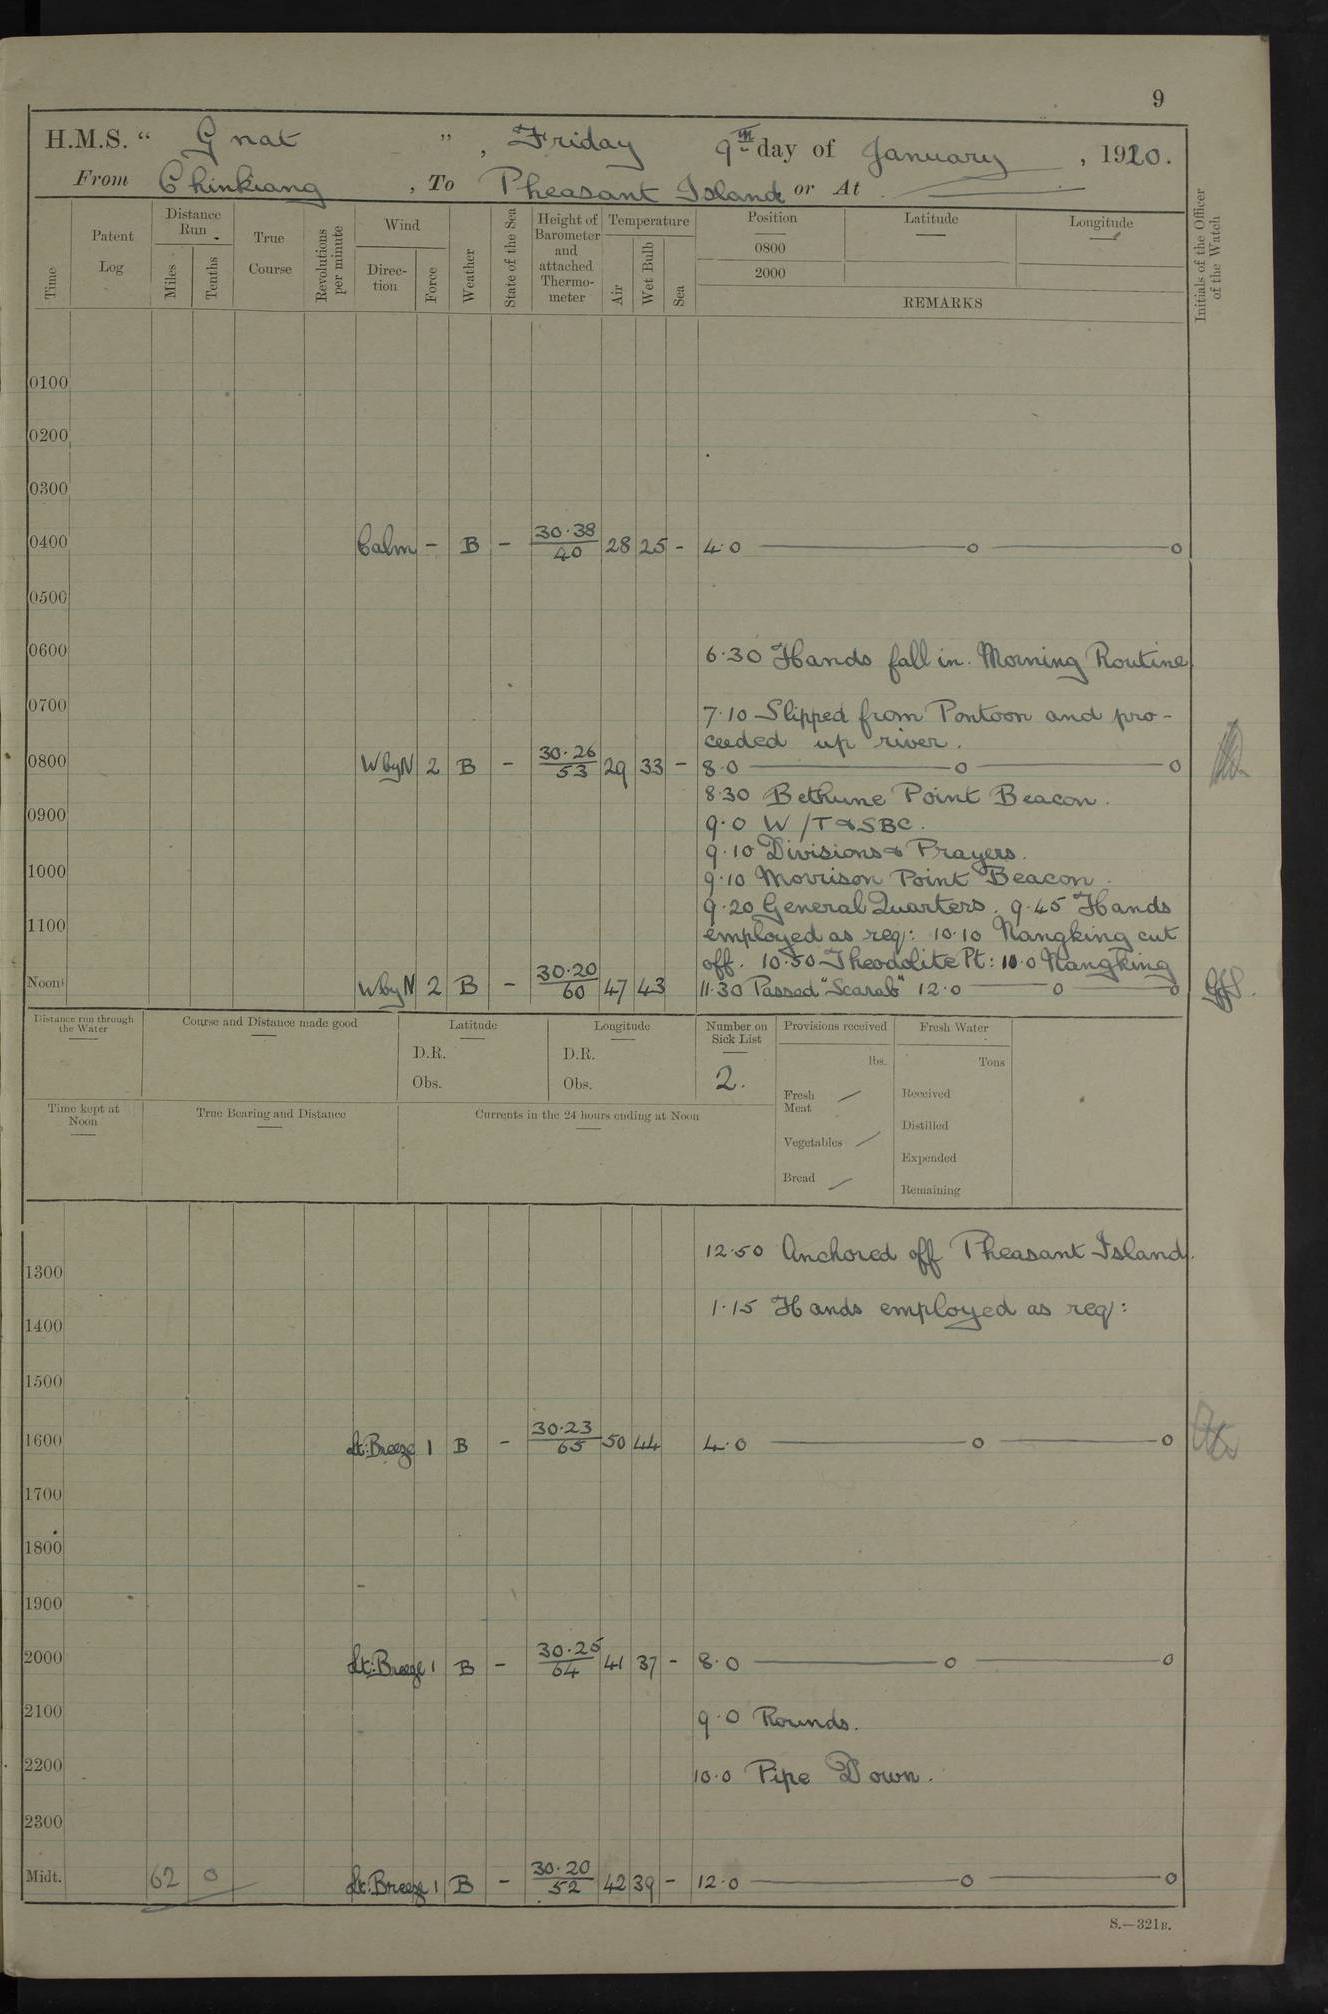 9
H.M.S. “ Gnat ” , Friday 9th day of January , 1920.
From Chinkiang , To Pheasant Island or At
Time
Patent Log
Distance Run
Miles
Tenths
True Course
Revolutions per minute
Wind
Direc-tion
Force
Weather
State of the Sea
Height of Barometer and attached Thermo-meter
Temperature
Air
Wet Bulb
Sea
Position
0800
2000
Latitude
Longitude
REMARKS
Initials of the Officer of the Watch
0100
0200
0300
0400 Calm - B - 30.38 / 40 28 25 - 4.0 —— o —— o
0500
0600
6.30 Hands fall in. Morning Routine
0700
7.10 Slipped from Pontoon and pro-
ceeded up river.
0800 W by N 2 B - 30.26 / 53 29 33 - 8.0 —— o —— o
8.30 Bethune Point Beacon.
0900
9.0 W/T & SBC.
9.10 Divisions & Prayers.
1000
9.10 Morrison Point Beacon.
9.20 General Quarters. 9.45 Hands
1100
employed as req: 10.10 Nangking cut
off. 10.50 Theodolite Pt: 11.0 Nangking
Noon W by N 2 B - 30.20 / 60 47 43 11.30 Passed "Scarab" 12.0 —— o —— o
Distance run through the Water
Course and Distance made good
Latitude
D.R.
Obs.
Longitude
D.R.
Obs.
Number on Sick List
2.
Provisions received
lbs.
Fresh Meat
Vegetables
Bread
Fresh Water
Tons
Received
Distilled
Expended
Remaining
Time kept at Noon
True Bearing and Distance
Currents in the 24 hours ending at Noon
12.50 Anchored off Pheasant Island.
1300
1.15 Hands employed as req:
1400
1500
1600 Lt: Breeze 1 B - 30.23 / 65 50 44 4.0 —— o —— o
1700
1800
1900
2000 Lt: Breeze 1 B - 30.25 / 64 41 37 - 8.0 —— o —— o
2100
9.0 Rounds.
2200
10.0 Pipe Down.
2300
Midt. 62 0 Lt: Breeze 1 B - 30.20 / 52 42 39 - 12.0 —— o —— o
S.—321B.